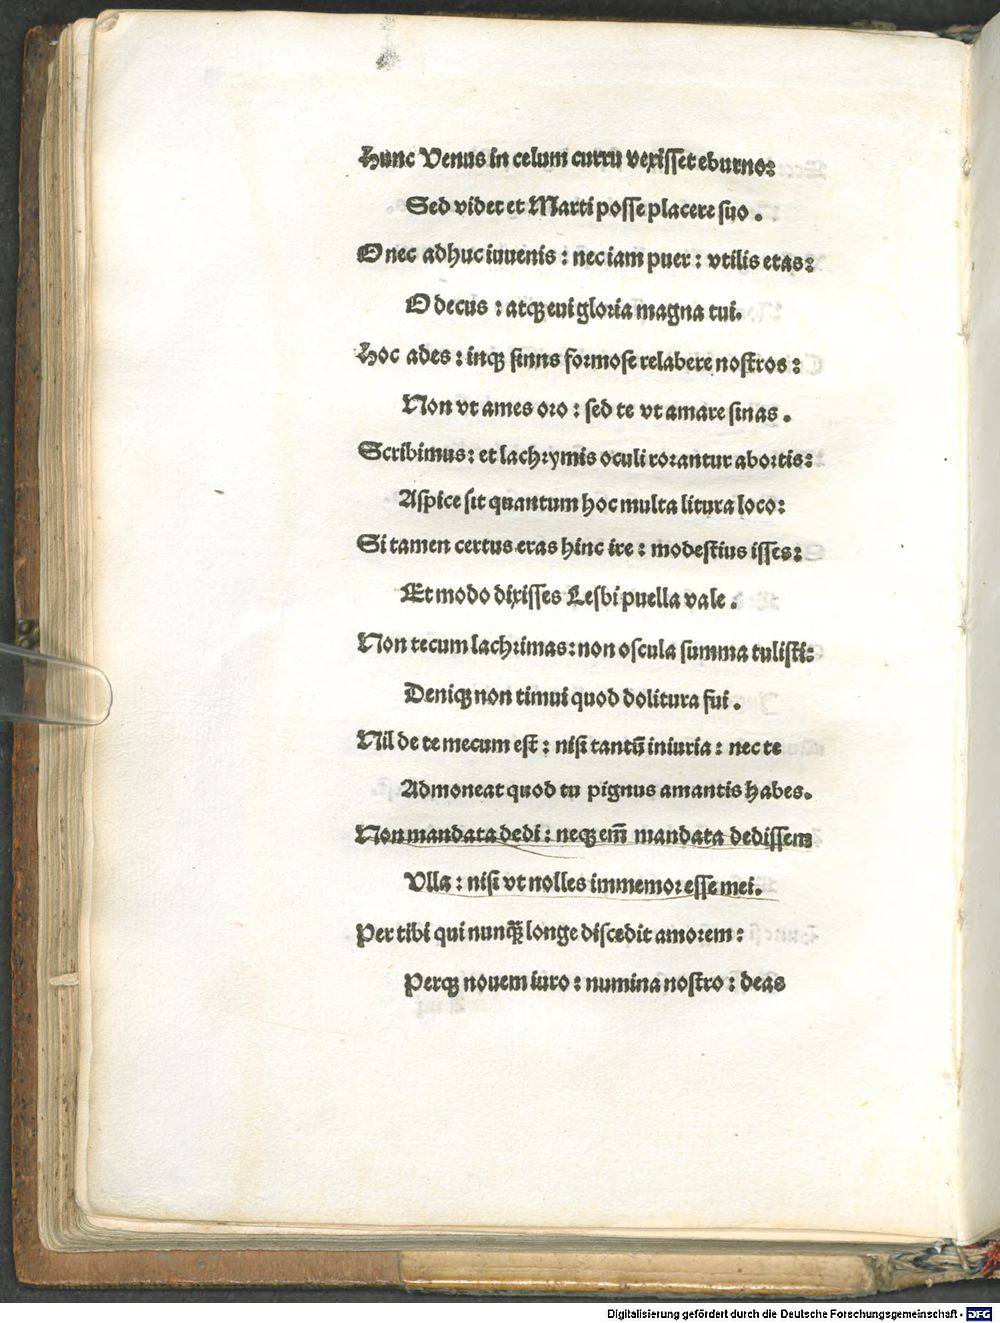 Hunc Venus in celum curru vexisset eburno:
Sed videt et Marti posse placere suo.
O nec adhuc iuuenis: nec iam puer: vtilis etas:
O decus: atqꝫ eui gloria magna tui.
Hoc ades: inqꝫ sinns formose relabere nostros:
Non vt ames oro: sed te vt amare sinas.
Scribimus: et lachrymis oculi rorantur abortis:
Aspice sit quantum hoc multa litura loco:
Si tamen certus eras hinc ire: modestius isses:
Et modo dixisses Lesbi puella vale.
Non tecum lachrimas: non oscula summa tulisti:
Deniqꝫ non timui quod dolitura fui.
Nil de te mecum est: nisi tantū iniuria: nec te
Admoneat quod tu pignus amantis habes.
Non mandata dedi: neqꝫ em̄ mandata dedissem
Vlla: nisi vt nolles immemor esse mei.
Per tibi qui nunqꝫ̄ longe discedit amorem:
Perqꝫ nouem iuro: numina nostro: deas
Digitalisierung gefördert durch die Deutsche Forschungsgemeinschaft - DFG